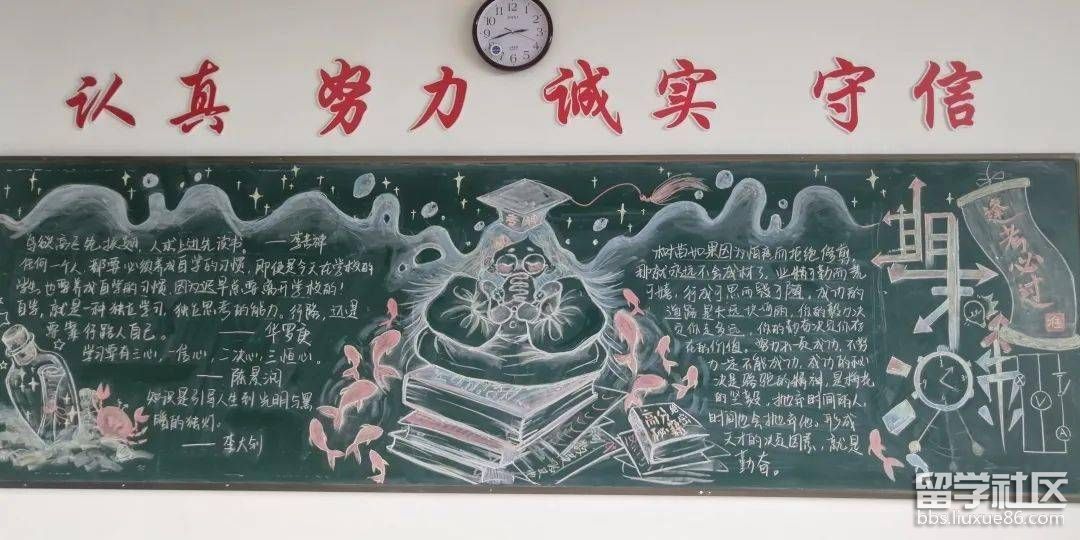 认真 努力 诚实 守信
鸟欲高飞先振翅，人求上进先读书。——李苦禅
任何一个人，都要必须养成自学的习惯，即使是今天在学校的
学生，也要养成自学的习惯，因为迟早总要离开学校的！
自学，就是一种独立学习，独立思考的能力。行路，还是
要靠行路人自己。
——华罗庚
学习要有三心，一信心，二决心，三恒心。
——陈景润
知识是引导人生到光明与黑
暗的烛灯。
——李大钊
树苗如果因为怕疼而拒绝修剪，
那就永远不会成材了。业精于勤而荒
于嬉，行成于思而毁于随。成功的
道路
你的努力决
定你走多远，你的勤奋决定你存
在的价值。努力不一定成功，不努
力一定不能成功。成功的秘
决是骆驼的精神，是梅花
的坚毅。抛弃时间的人，
时间也会抛弃他。形成
天才的决定因素，就是
勤奋。
高分
秘籍
期
中
逢考必过
V
A
留学社区
bbs.liuxue86.com